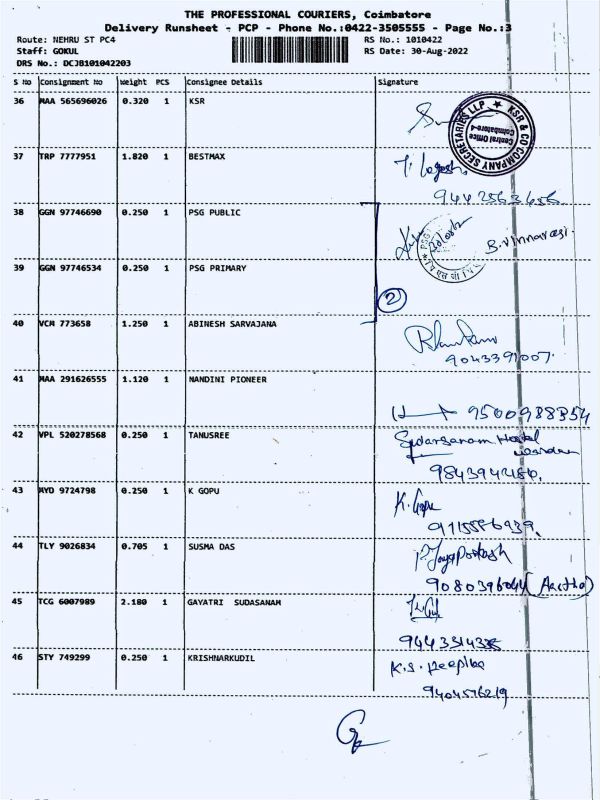 THE PROFESSIONAL COURIERS, Coimbatore
Delivery Runsheet - PCP - Phone No.:0422-3505555 - Page No.:3
Route: NEHRU ST PC4 RS No.: 1010422
Staff: GOKUL RS Date: 30-Aug-2022
DRS No.: DCJB101042203
S No Consignment No Weight PCS Consignee Details Signature
36 MAA 565696026 0.320 1 KSR
KSR & CO COMPANY SECRETARIES LLP
Central Office
Coimbatore-4
37 TRP 7777951 1.820 1 BESTMAX
38 GGN 97746690 0.250 1 PSG PUBLIC
39 GGN 97746534 0.250 1 PSG PRIMARY
2
40 VCM 773658 1.250 1 ABINESH SARVAJANA
9043391007.
41 MAA 291626555 1.120 1 NANDINI PIONEER
9500988354
42 VPL 520278568 0.250 1 TANUSREE Sudarsanam Hostel
43 MYD 9724798 0.250 1 K GOPU K. Gopu
44 TLY 9026834 0.705 1 SUSMA DAS
45 TCG 6007989 2.180 1 GAYATRI SUDASANAM
46 STY 749299 0.250 1 KRISHNARKUDIL K.S. Deepika
9404576219